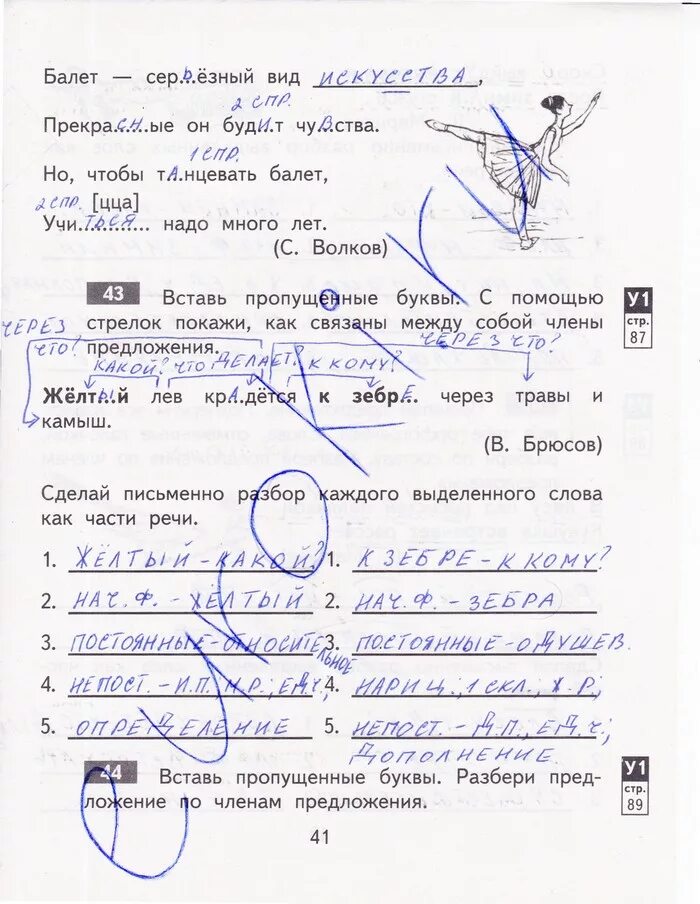 Балет — сер.ь.ёзный вид ИСКУССТВА,
2 СПР.
Прекра..сн..ые он буд.И.т чу.В.ства.
1 СПР.
Но, чтобы т.А.нцевать балет,
2 СПР. [цца]
Учи...ТЬСЯ... надо много лет.
(С. Волков)
43 Вставь пропущенные буквы. С помощью
стрелок покажи, как связаны между собой члены
предложения.
У1
стр.
87
ЧЕРЕЗ ЧТО? КАКОЙ? ЧТО ДЕЛАЕТ? К КОМУ? ЧЕРЕЗ ЧТО?
Жёлт.Ы.й лев кр.А.дётся к зебр.Е. через травы и
камыш.
(В. Брюсов)
Сделай письменно разбор каждого выделенного слова
как части речи.
1. ЖЁЛТЫЙ – КАКОЙ? 1. К ЗЕБРЕ – К КОМУ?
2. НАЧ. Ф. – ЖЁЛТЫЙ 2. НАЧ. Ф. – ЗЕБРА
3. ПОСТОЯННЫЕ – ОТНОСИТЕЛЬНОЕ 3. ПОСТОЯННЫЕ – ОДУШЕВ.
4. НЕПОСТ. – И.П.; М.Р.; ЕД.Ч; 4. НАРИЦ.; 1 СКЛ.; Ж.Р.;
5. ОПРЕДЕЛЕНИЕ 5. НЕПОСТ. – Д.П., ЕД.Ч.;
ДОПОЛНЕНИЕ.
44 Вставь пропущенные буквы. Разбери пред-
ложение по членам предложения.
У1
стр.
89
41